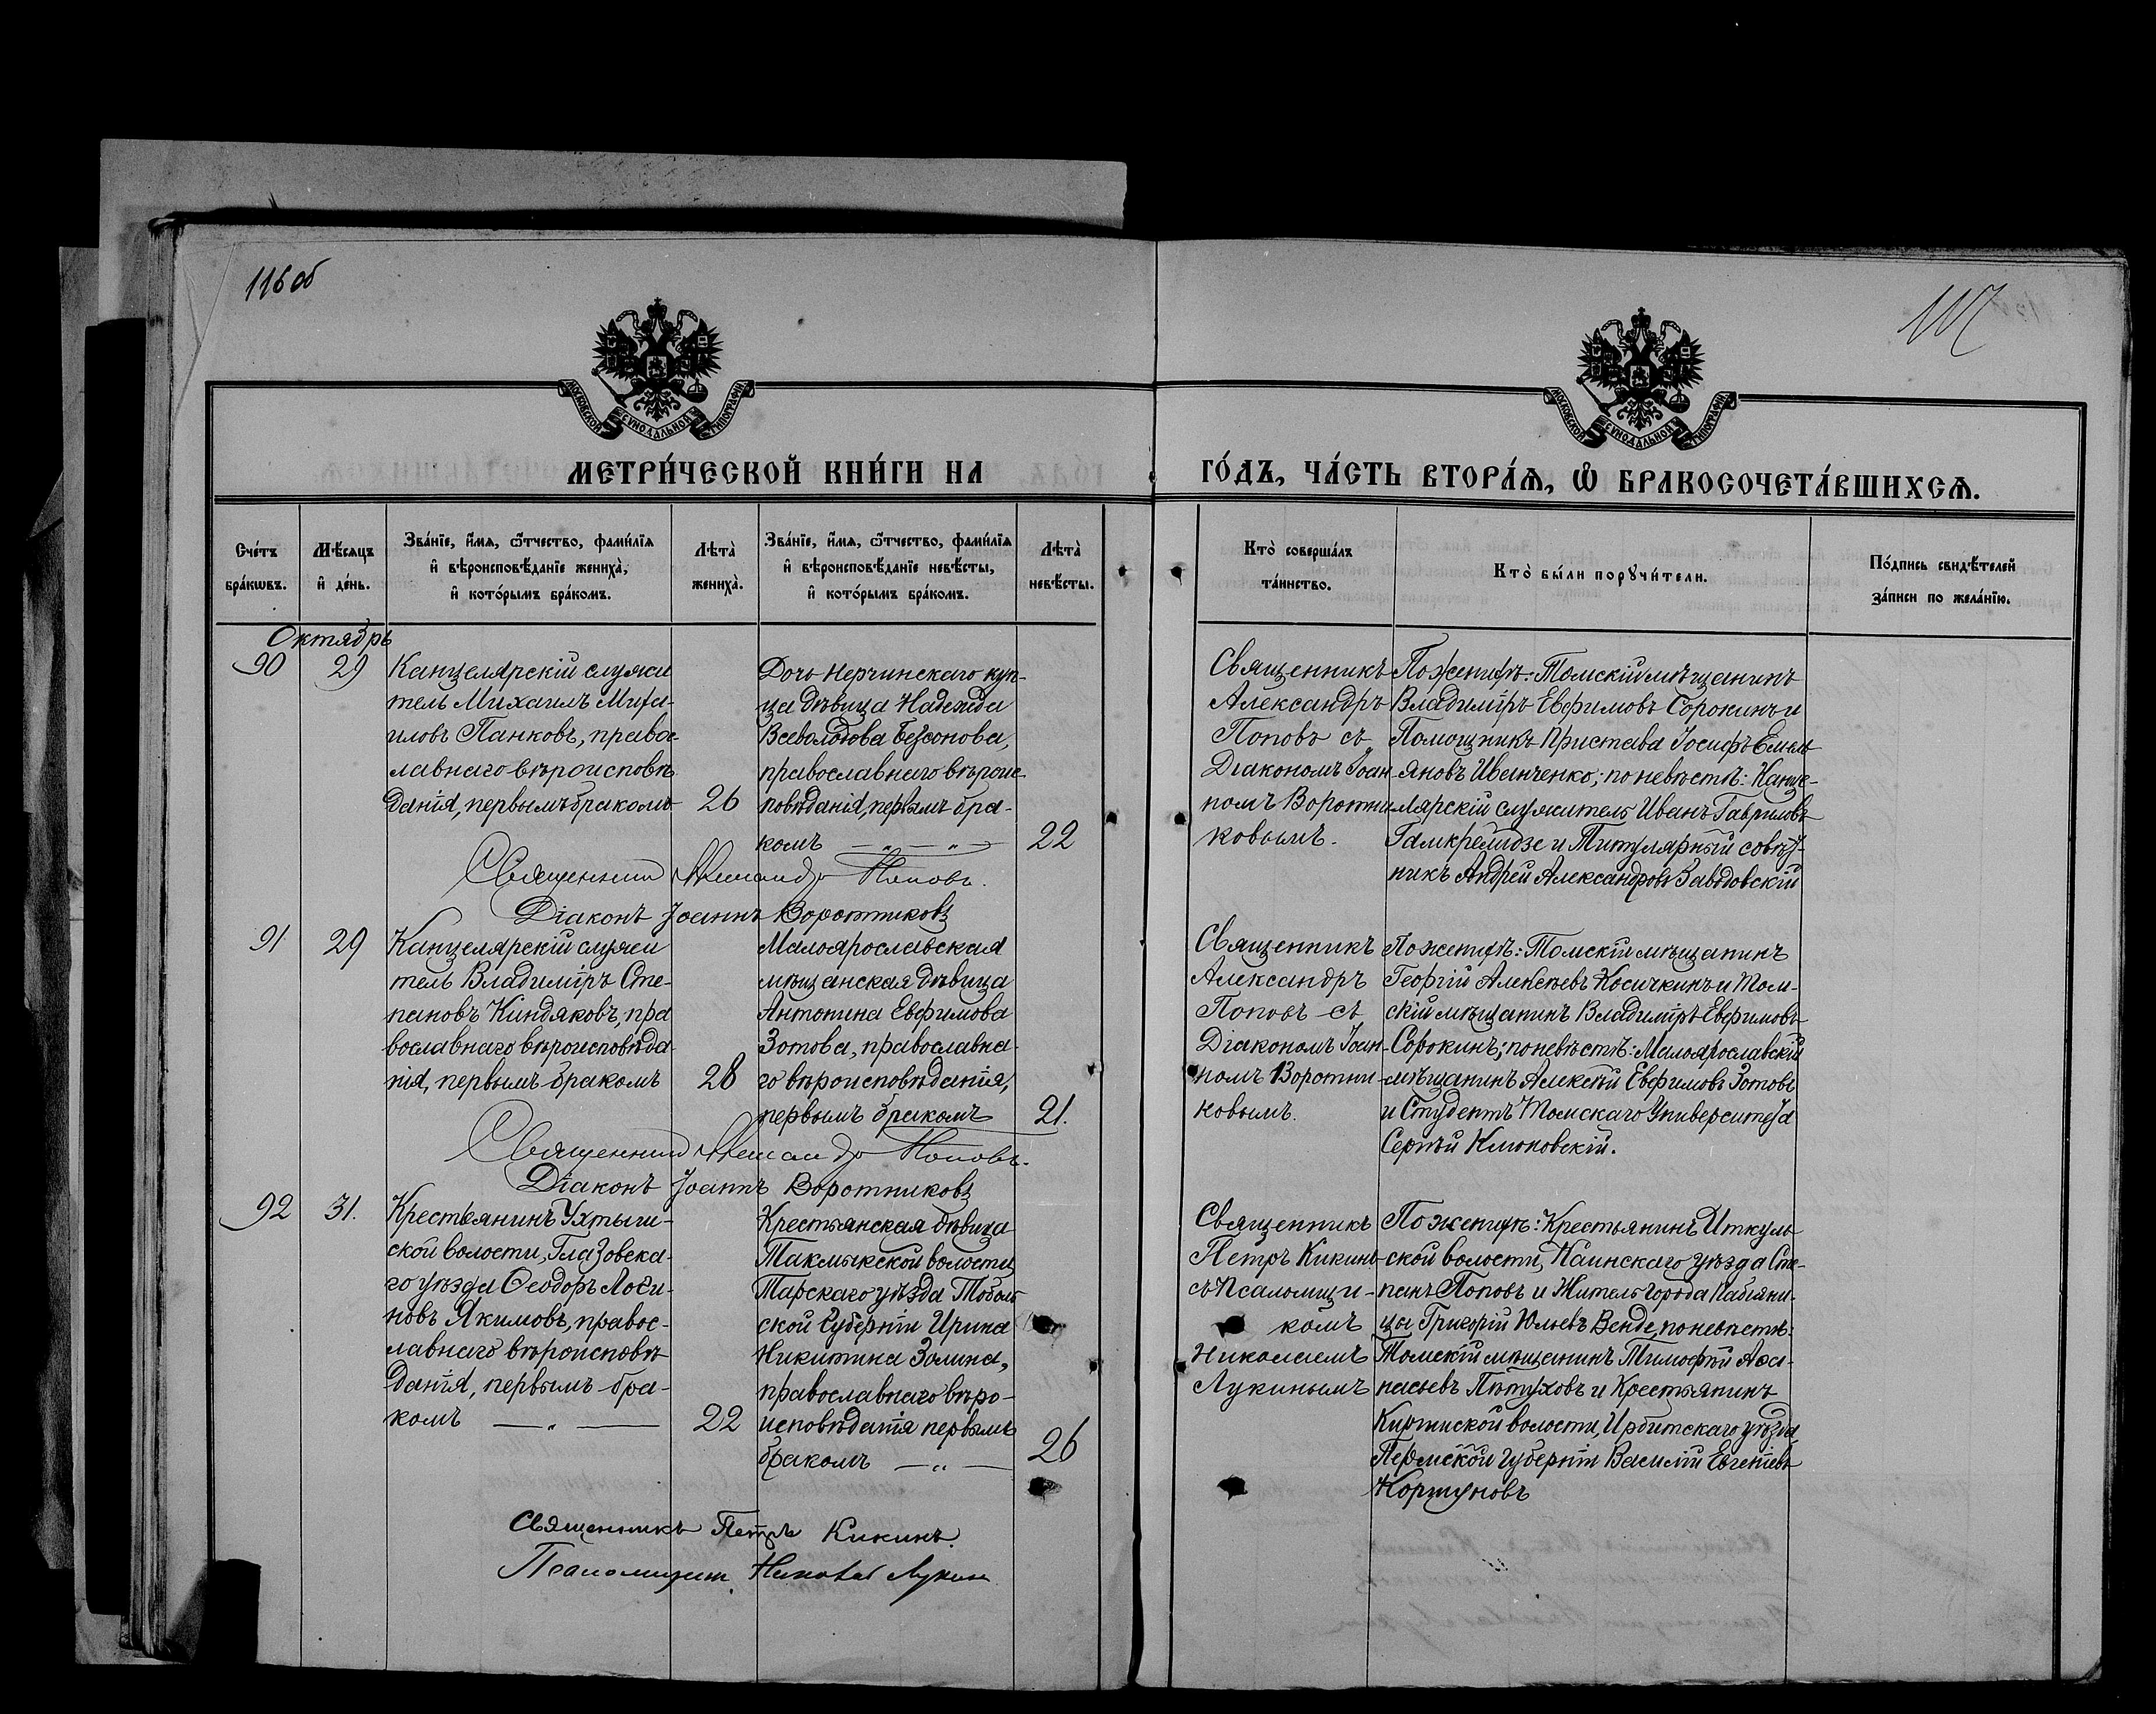 116об
117
МОСКОВСКОЙ СУНОДАЛЬНОЙ ТИПОГРАФІИ
МОСКОВСКОЙ СУНОДАЛЬНОЙ ТИПОГРАФІИ
МЕТРИ́ЧЕСКОЙ КНИ́ГИ НА
ГО́ДЪ, ЧА́СТЬ ВТОРА́Ѧ, Ѽ БРАКОСОЧЕТА́ВШИХСѦ.
Сче́тъ
бра́кѡвъ.
Мѣ́сяцъ
и҆ де́нь.
Зва́нїе, и҆́мѧ, ѻ҆́тчество, фами́лїѧ
и҆ вѣроисповѣ́данїе жениха̀,
и҆ кото́рымъ бра́комъ.
Лѣта̀
жениха̀.
Зва́нїе, и҆́мѧ, ѻ҆́тчество, фами́лїѧ
и҆ вѣроисповѣ́данїе невѣ́сты,
и҆ кото́рымъ бра́комъ.
Лѣта̀
невѣ́сты.
Кто̀ соверша́лъ
та́инство.
Кто̀ бы́ли порꙋчи́тели.
По́дпись свидѣ́телей
за́писи по жела́нїю.
Октябрь
90
29
Канцелярскій служи
тель Михаилъ Миха-
иловъ Панковъ, правос-
лавнаго вѣроисповѣ
данія, первымъ бракомъ
26
Дочь Нерчинскаго куп-
ца дѣвица Надежда
Всеволодова Безсонова,
православнаго вѣроис-
повѣданія, первымъ бра-
комъ — „ — „ —
22
Священникъ
Александръ
Поповъ съ
Діакономъ Іоан-
номъ Воротни
ковымъ.
По женихѣ: Томскій мѣщанинъ
Владиміръ Евфимовъ Сорокинъ и
Помощникъ Пристава Іосифъ Емель
яновъ Иванченко; по невѣстѣ: Канце-
лярскій служитель Иванъ Гавриловъ
Гамкрелидзе и Титулярный совѣт-
никъ Андрей Александровъ Заводовскій
Священникъ Александръ Поповъ.
Діаконъ Іоаннъ Воротниковъ
91
29
Канцелярскій служи
тель Владиміръ Сте-
пановъ Киндяковъ, пра
вославнаго вѣроисповѣда
нія, первымъ бракомъ
28
Малоярославская
мѣщанская дѣвица
Антонина Евфимова
Зотова, православна-
го вѣроисповѣданія,
первымъ бракомъ
21.
Священникъ
Александръ
Поповъ съ
Діакономъ Іоан-
номъ Воротни
ковымъ.
По женихѣ: Томскій мѣщанинъ
Георгій Алексѣевъ Косичкинъ и Том-
скій мѣщанинъ Владиміръ Евфимовъ
Сорокинъ; по невѣстѣ: Малоярославскій
мѣщанинъ Алексѣй Евфимовъ Зотовъ
и Студентъ Томскаго Университета
Сергѣй Клюновскій.
Священникъ Александръ Поповъ.
Діаконъ Іоаннъ Воротниковъ
92
31.
Крестьянинъ Ухтыги-
ской волости, Глазовска-
го уѣзда Ѳеодоръ Логи-
новъ Якимовъ, правос-
лавнаго вѣроисповѣ
данія, первымъ бра-
комъ — „ —
22
Крестьянская дѣвица
Такмыкской волости
Тарскаго уѣзда Тоболь
ской Губерніи Ирина
Никитина Золина,
православнаго вѣро-
исповѣданія первымъ
бракомъ — „ —
26
Священникъ
Петръ Кикинъ
съ Псаломщи-
комъ
Николаемъ
Лукинымъ
По женихѣ: Крестьянинъ Иткуль
ской волости, Каинскаго уѣзда Сте-
панъ Поповъ и Житель города Пабіани-
цы Григорій Юльевъ Венде, по невѣстѣ:
Томскій мѣщанинъ Тимофей Аѳа-
насьевъ Пѣтуховъ и Крестьянинъ
Киргинской волости, Ирбитскаго уѣзда,
Пермской Губерніи Василій Евгеніевъ
Коршуновъ
Священникъ Петръ Кикинъ.
Псаломщикъ Николай Лукин